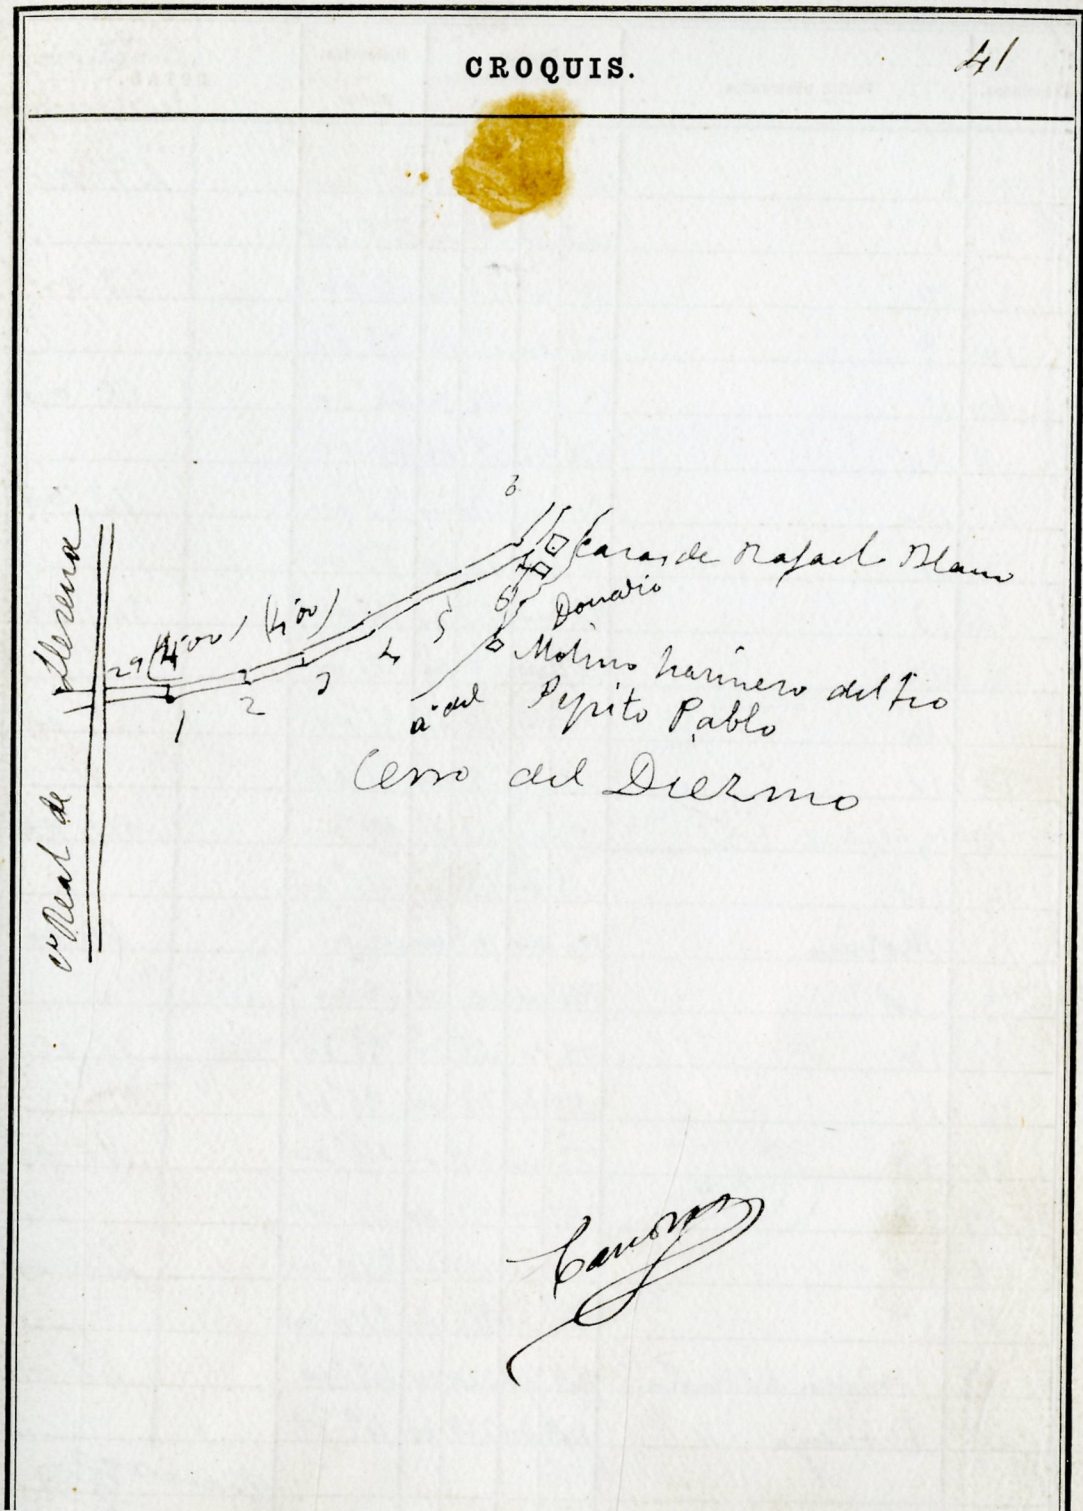 CROQUIS.
41
cº Real de Llerena
29 (4'00) (4'00)
1
2
3
4
5
6
7
8
Casas de Rafael Blanco
Donadio
Molino harinero del tio
aº del Pepito Pablo
Cerro del Diezmo